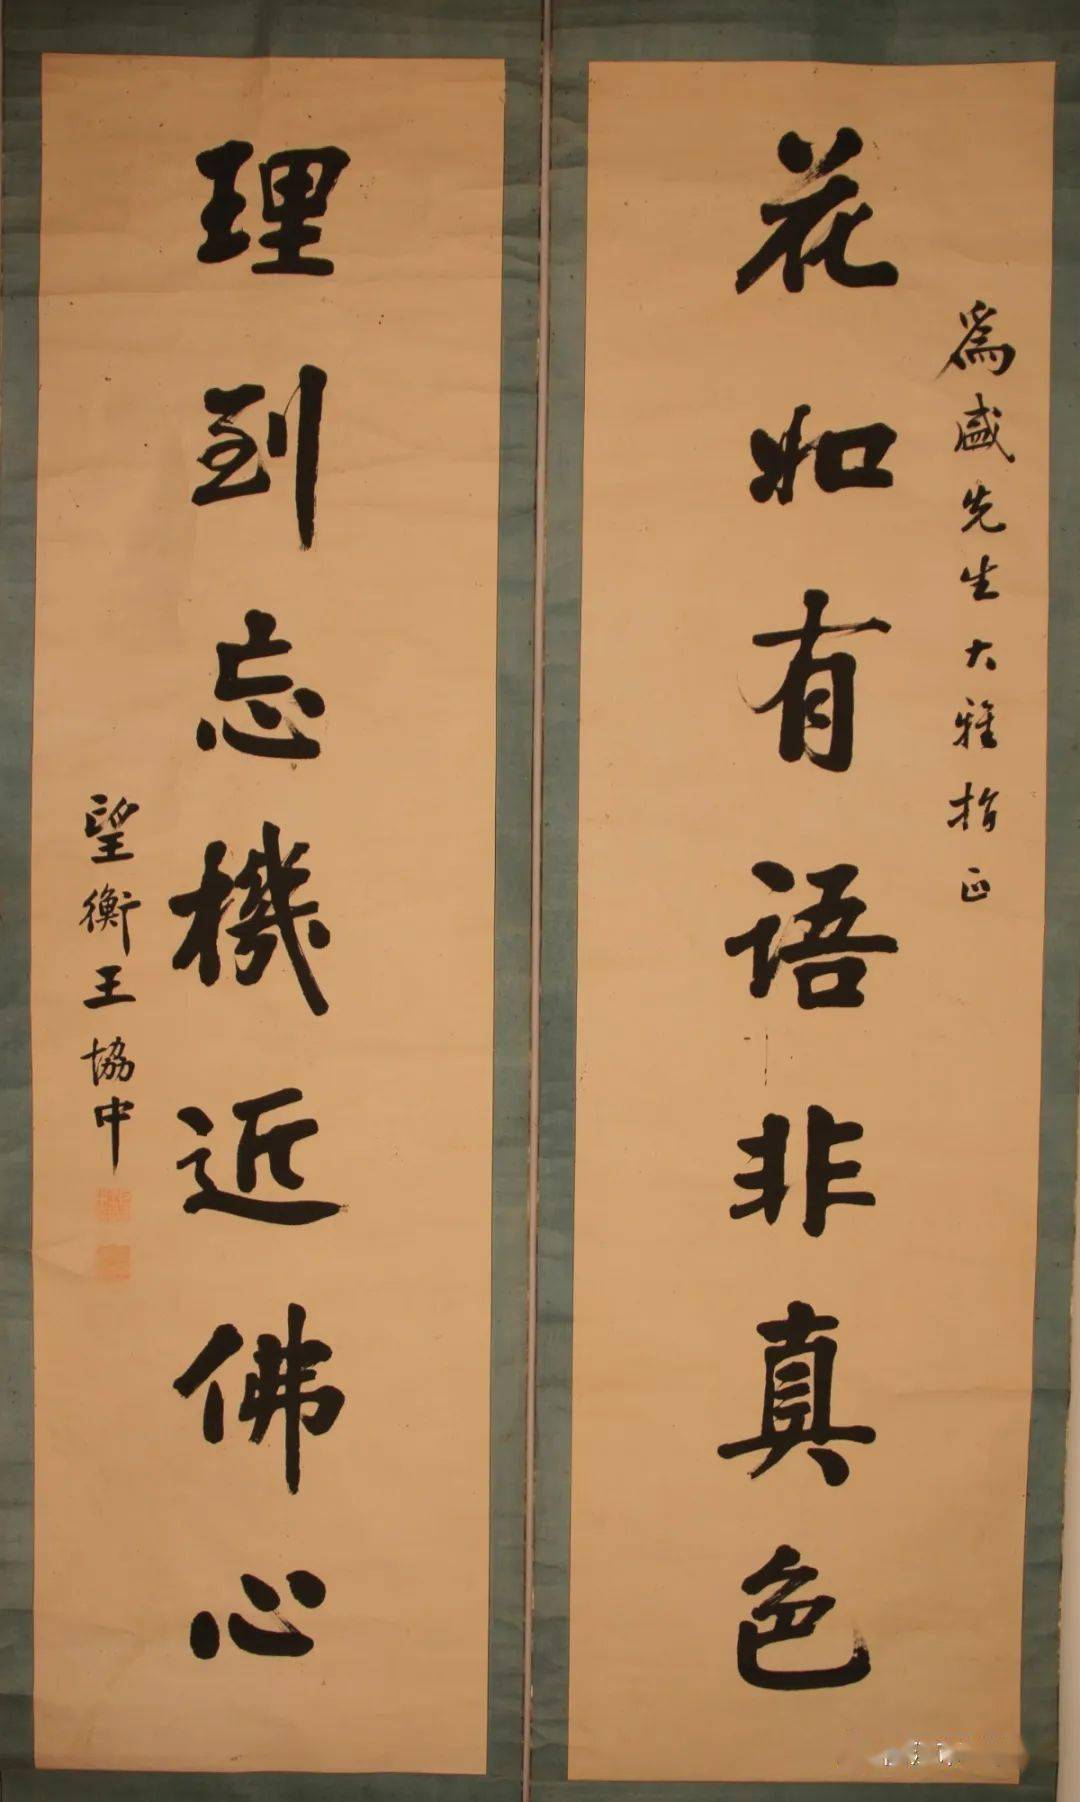 花如有語非真色
爲盛先生大雅指正
理到忘機近佛心
望衡王協中